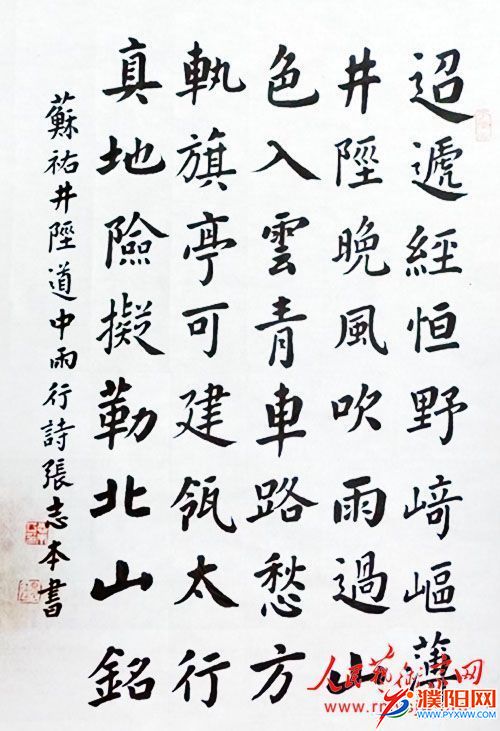 迢遞經恒野崎嶇薄
井陘晚風吹雨過山
色入雲青車路愁方
軌旗亭可建瓴太行
真地險擬勒北山銘
蘇祐井陘道中雨行詩張志本書
人民藝術網
濮阳网
www.pyxww.com